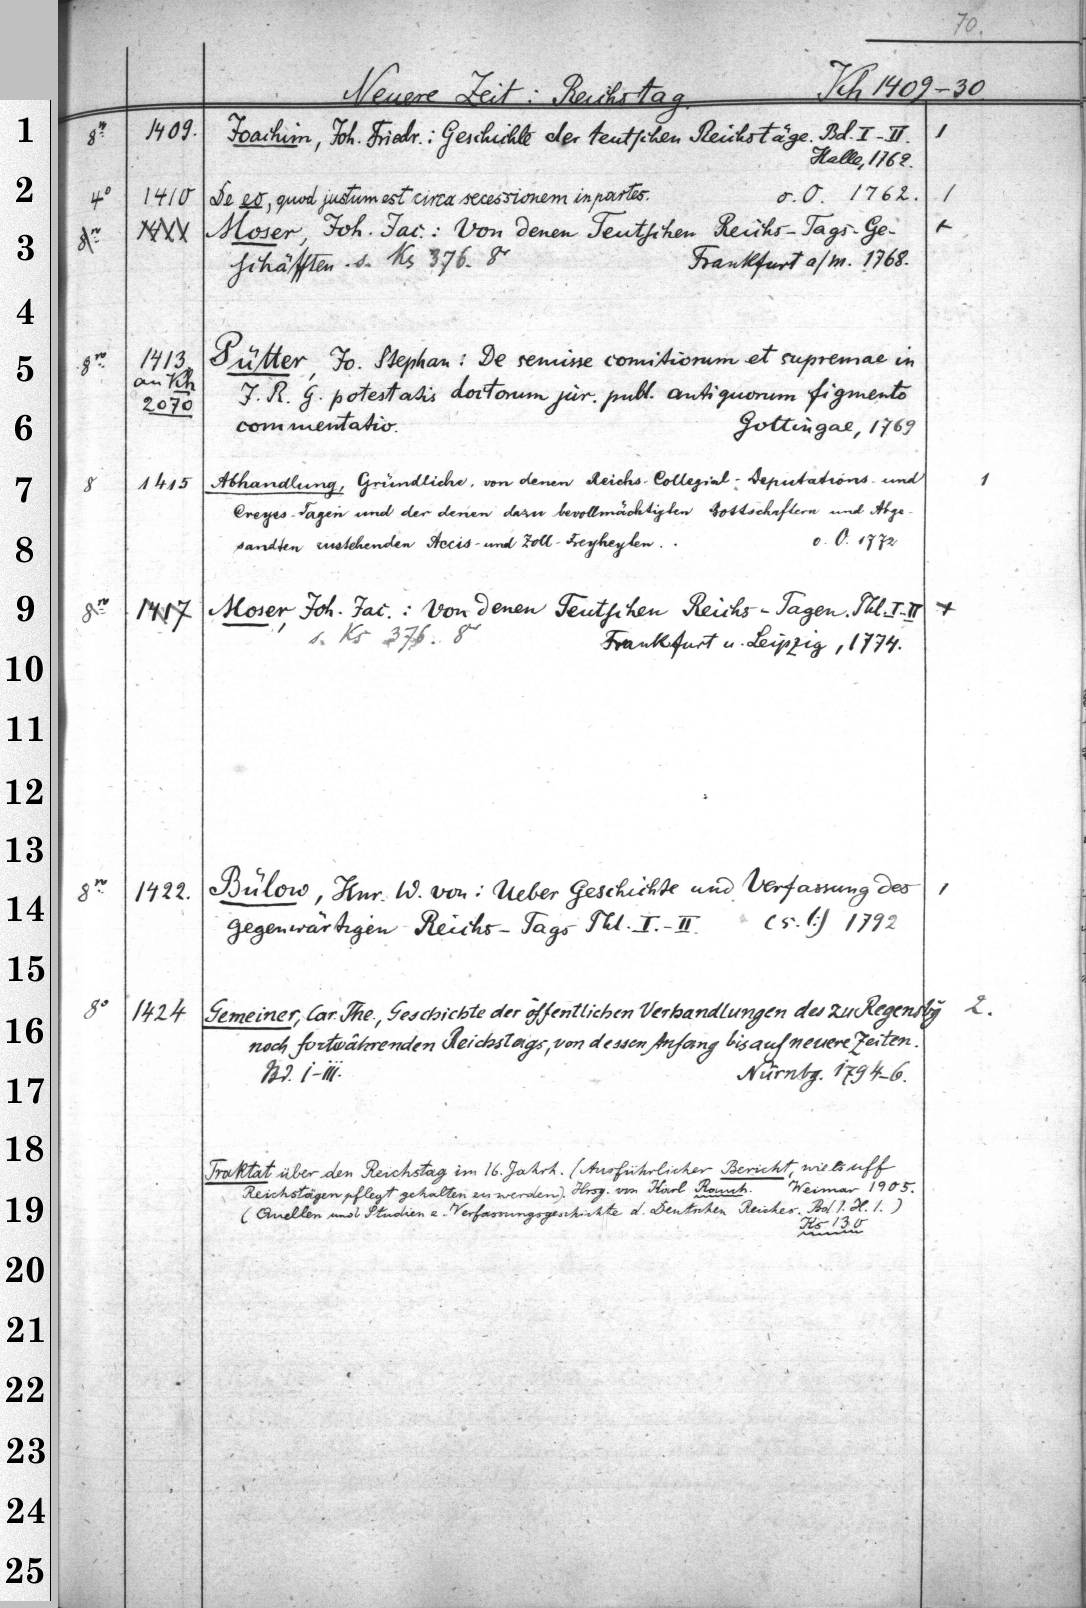 70.
Neuere Zeit: Reichstag. Kh 1409-30
1 8º 1409. Joachim, Joh. Friedr.: Geschichte der teutschen Reichstäge. Bd. I-II. 1
Halle, 1762.
2 4º 1410 De eo, quod justum est circa secessionem in partes. o. O. 1762. 1
3 Moser, Joh. Jac.: Von denen Teutschen Reichs-Tags-Ge- +
schäfften. s. Ks 376. 8º Frankfurt a/m. 1768.
4
5 8º 1413 Pütter, Jo. Stephan: De semisse comitiorum et supremae in
an Kh J. R. G. potestatis doctorum jur. publ. antiquorum figmento
2070
6 commentatio. Gottingae, 1769
7 8 1415 Abhandlung, Gründliche, von denen Reichs-Collegial-Deputations- und 1
Creyes-Tagen und der denen dazu bevollmächtigten Bottschaftern und Abge-
8 sandten zustehenden Accis- und Zoll-Freyheyten.. o. O. 1772
9 8º 1417 Moser, Joh. Jac.: Von denen Teutschen Reichs-Tagen. Thl. I-II +
s. Ks 376. 8º Frankfurt u. Leipzig, 1774.
10
11
12
13
14 8º 1422. Bülow, Hnr. W. von: Ueber Geschichte und Verfassung des 1
gegenwärtigen Reichs-Tags Thl. I.-II. (s. l.) 1792
15
16 8º 1424 Gemeiner, Car. The., Geschichte der öffentlichen Verhandlungen des zu Regensbg 2.
noch fortwährenden Reichstags, von dessen Anfang bis auf neuere Zeiten.
17 Bd. I-III. Nürnbg. 1794-6.
18 Traktat über den Reichstag im 16. Jahrh. (Ausführlicher Bericht, wie es uff
Reichstägen pflegt gehalten zu werden). Hrsg. von Karl Rauch. Weimar 1905.
19 (Quellen und Studien z. Verfassungsgeschichte d. Deutschen Reiches. Bd 1. H. 1.)
Ks 130
20
21
22
23
24
25